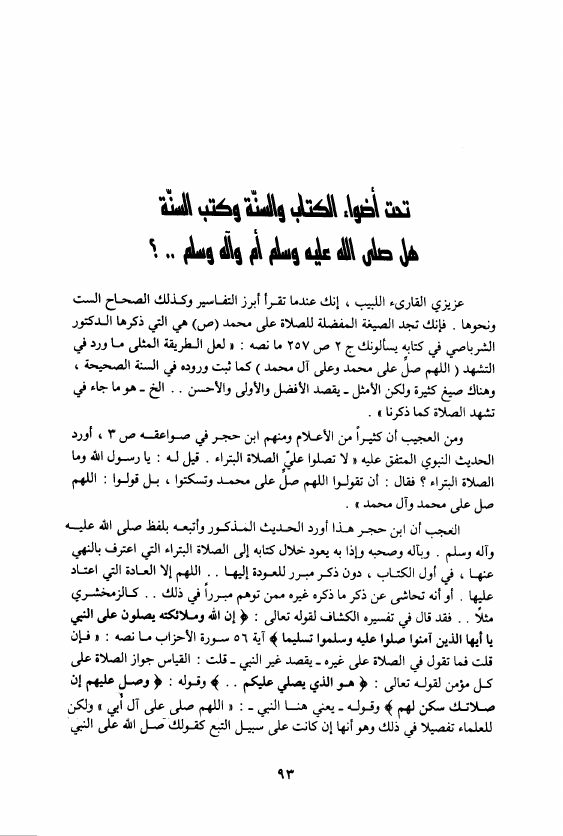 تحت أضواء الكتاب والسنّة وكتب السنّة
هل صلى الله عليه وسلم أم وآله وسلم .. ؟
عزيزي القارىء اللبيب ، إنك عندما تقرأ أبرز التفاسير وكذلك الصحاح الست
ونحوها . فإنك تجد الصيغة المفضلة للصلاة على محمد (ص) هي التي ذكرها الدكتور
الشرباصي في كتابه يسألونك ج ٢ ص ٢٥٧ ما نصه : « لعل الطريقة المثلى ما ورد في
التشهد ( اللهم صلّ على محمد وعلى آل محمد ) كما ثبت وروده في السنة الصحيحة ،
وهناك صيغ كثيرة ولكن الأمثل ـ يقصد الأفضل والأولى والأحسن .. الخ ـ هو ما جاء في
تشهد الصلاة كما ذكرنا » .
ومن العجيب أن كثيراً من الأعلام ومنهم ابن حجر في صواعقه ص ٣ ، أورد
الحديث النبوي المتفق عليه « لا تصلوا عليّ الصلاة البتراء . قيل له : يا رسول الله وما
الصلاة البتراء ؟ فقال : أن تقولوا اللهم صلّ على محمد وتسكتوا ، بل قولوا : اللهم
صل على محمد وآل محمد » .
العجب أن ابن حجر هذا أورد الحديث المذكور وأتبعه بلفظ صلى الله عليه
وآله وسلم . وبآله وصحبه وإذا به يعود خلال كتابه إلى الصلاة البتراء التي اعترف بالنهي
عنها ، في أول الكتاب ، دون ذكر مبرر للعودة إليها .. اللهم إلا العادة التي اعتاد
عليها . أو أنه تحاشى عن ذكر ما ذكره غيره ممن توهم مبرراً في ذلك .. كالزمخشري
مثلاً .. فقد قال في تفسيره الكشاف لقوله تعالى : ﴿ إن الله وملائكته يصلون على النبي
يا أيها الذين آمنوا صلوا عليه وسلموا تسليما ﴾ آية ٥٦ سورة الأحزاب ما نصه : « فإن
قلت فما تقول في الصلاة على غيره ـ يقصد غير النبي ـ قلت : القياس جواز الصلاة على
كل مؤمن لقوله تعالى : ﴿ هو الذي يصلي عليكم .. ﴾ وقوله : ﴿ وصل عليهم إن
صلاتك سكن لهم ﴾ وقوله ـ يعني هنا النبي ـ : « اللهم صلى على آل أبي » ولكن
للعلماء تفصيلا في ذلك وهو أنها إن كانت على سبيل التبع كقولك صل الله على النبي
٩٣